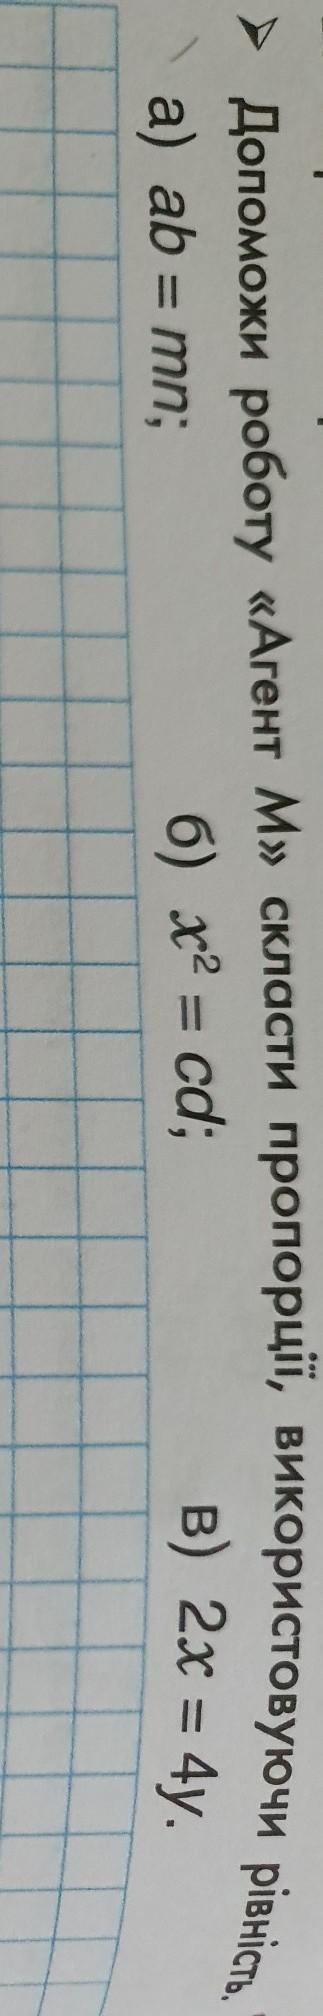 ➢ Допоможи роботу «Агент М» скласти пропорції, використовуючи рівність.
а) ab = mn; б) x² = cd; в) 2x = 4y.